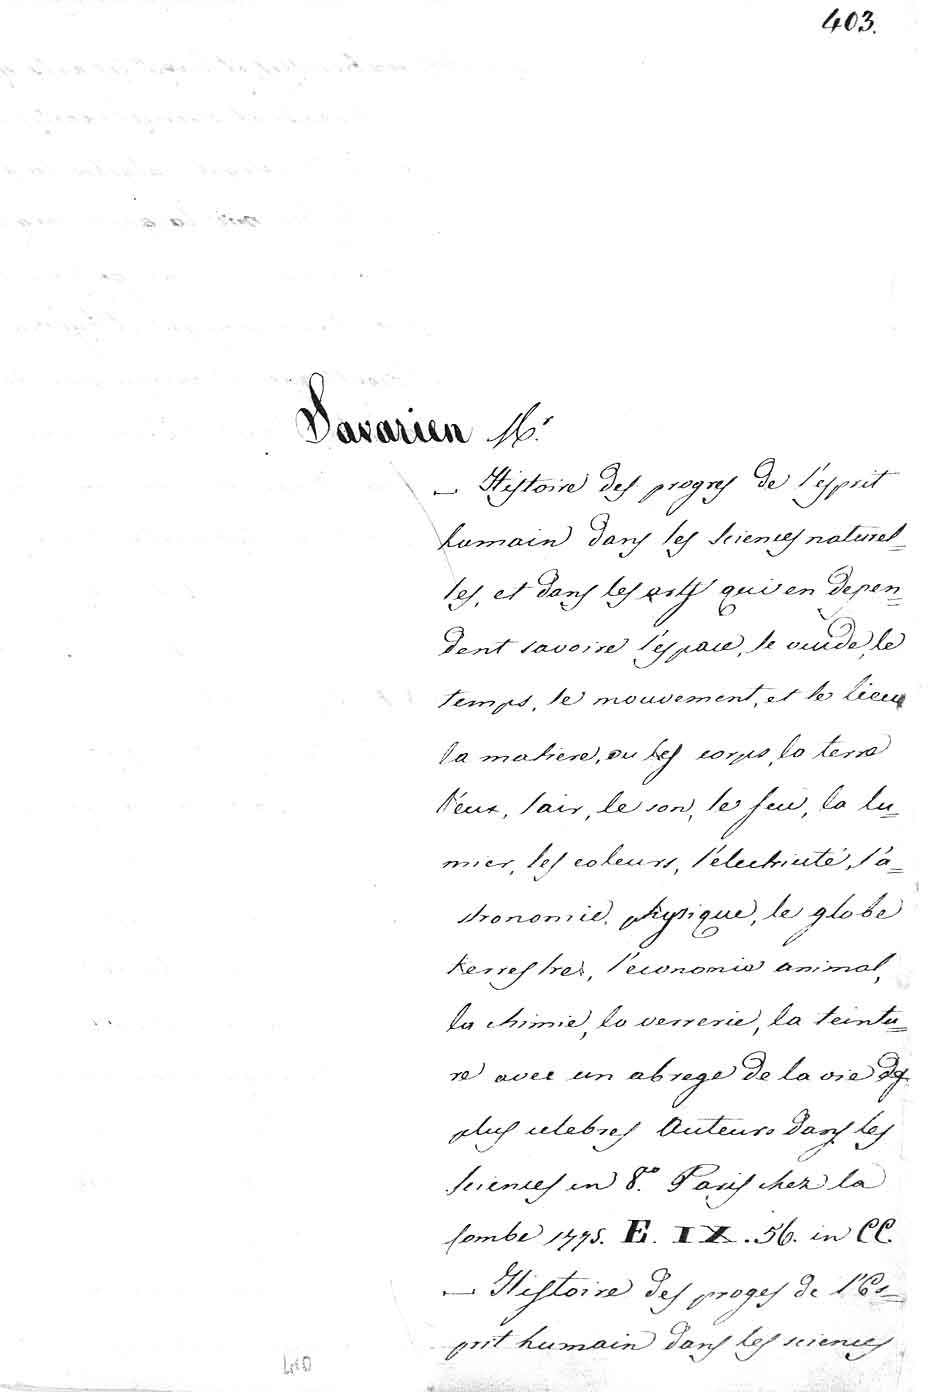 403.
Savarien Mr.
— Histoire des progres de l'esprit
humain dans les sciences naturel=
les, et dans les arts qui en depen=
dent savoire l'espace, le vuide, le
temps, le mouvement, et le lieu
la matiere, ou les corps, la terre
l'eux, l'air, le son, le feu, la lu=
mier, les coleurs, l'électricité, l'a=
stronomie, physique, le globe
terrestre, l'economie animal,
la chimie, la verrerie, la teintu=
re avec un abregé de la vie des
plus celebres Auteurs dans les
sciences in 8.o Paris chez la
combe 1775. E. IX. 56. in CC.
— Histoire des proges de l'Es=
prit humain dans les sciences